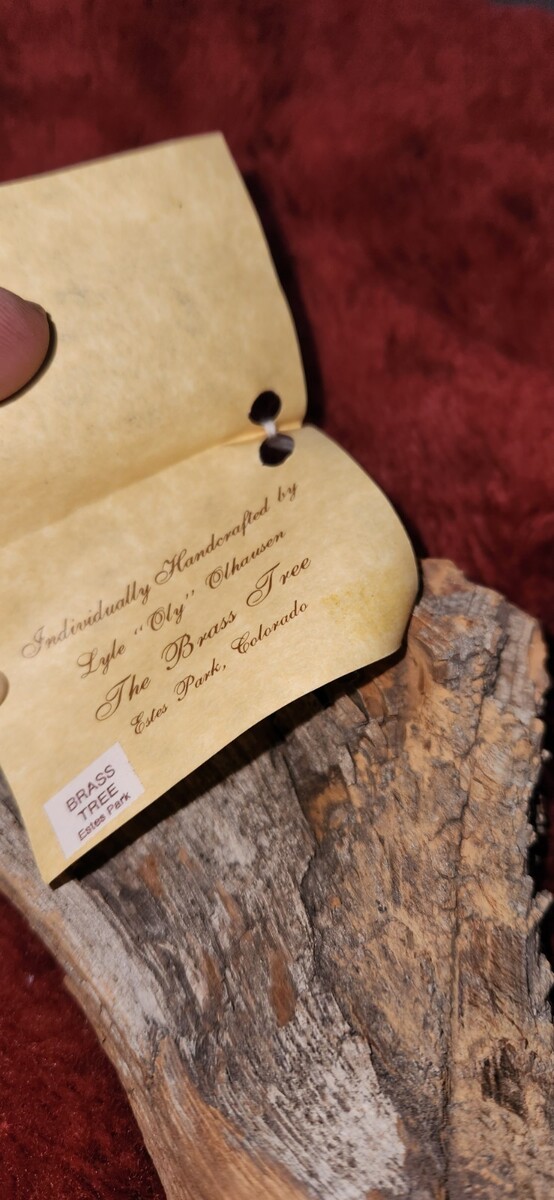 Individually Handcrafted by
Lyle "Oly" Olhausen
The Brass Tree
Estes Park, Colorado
BRASS
TREE
Estes Park